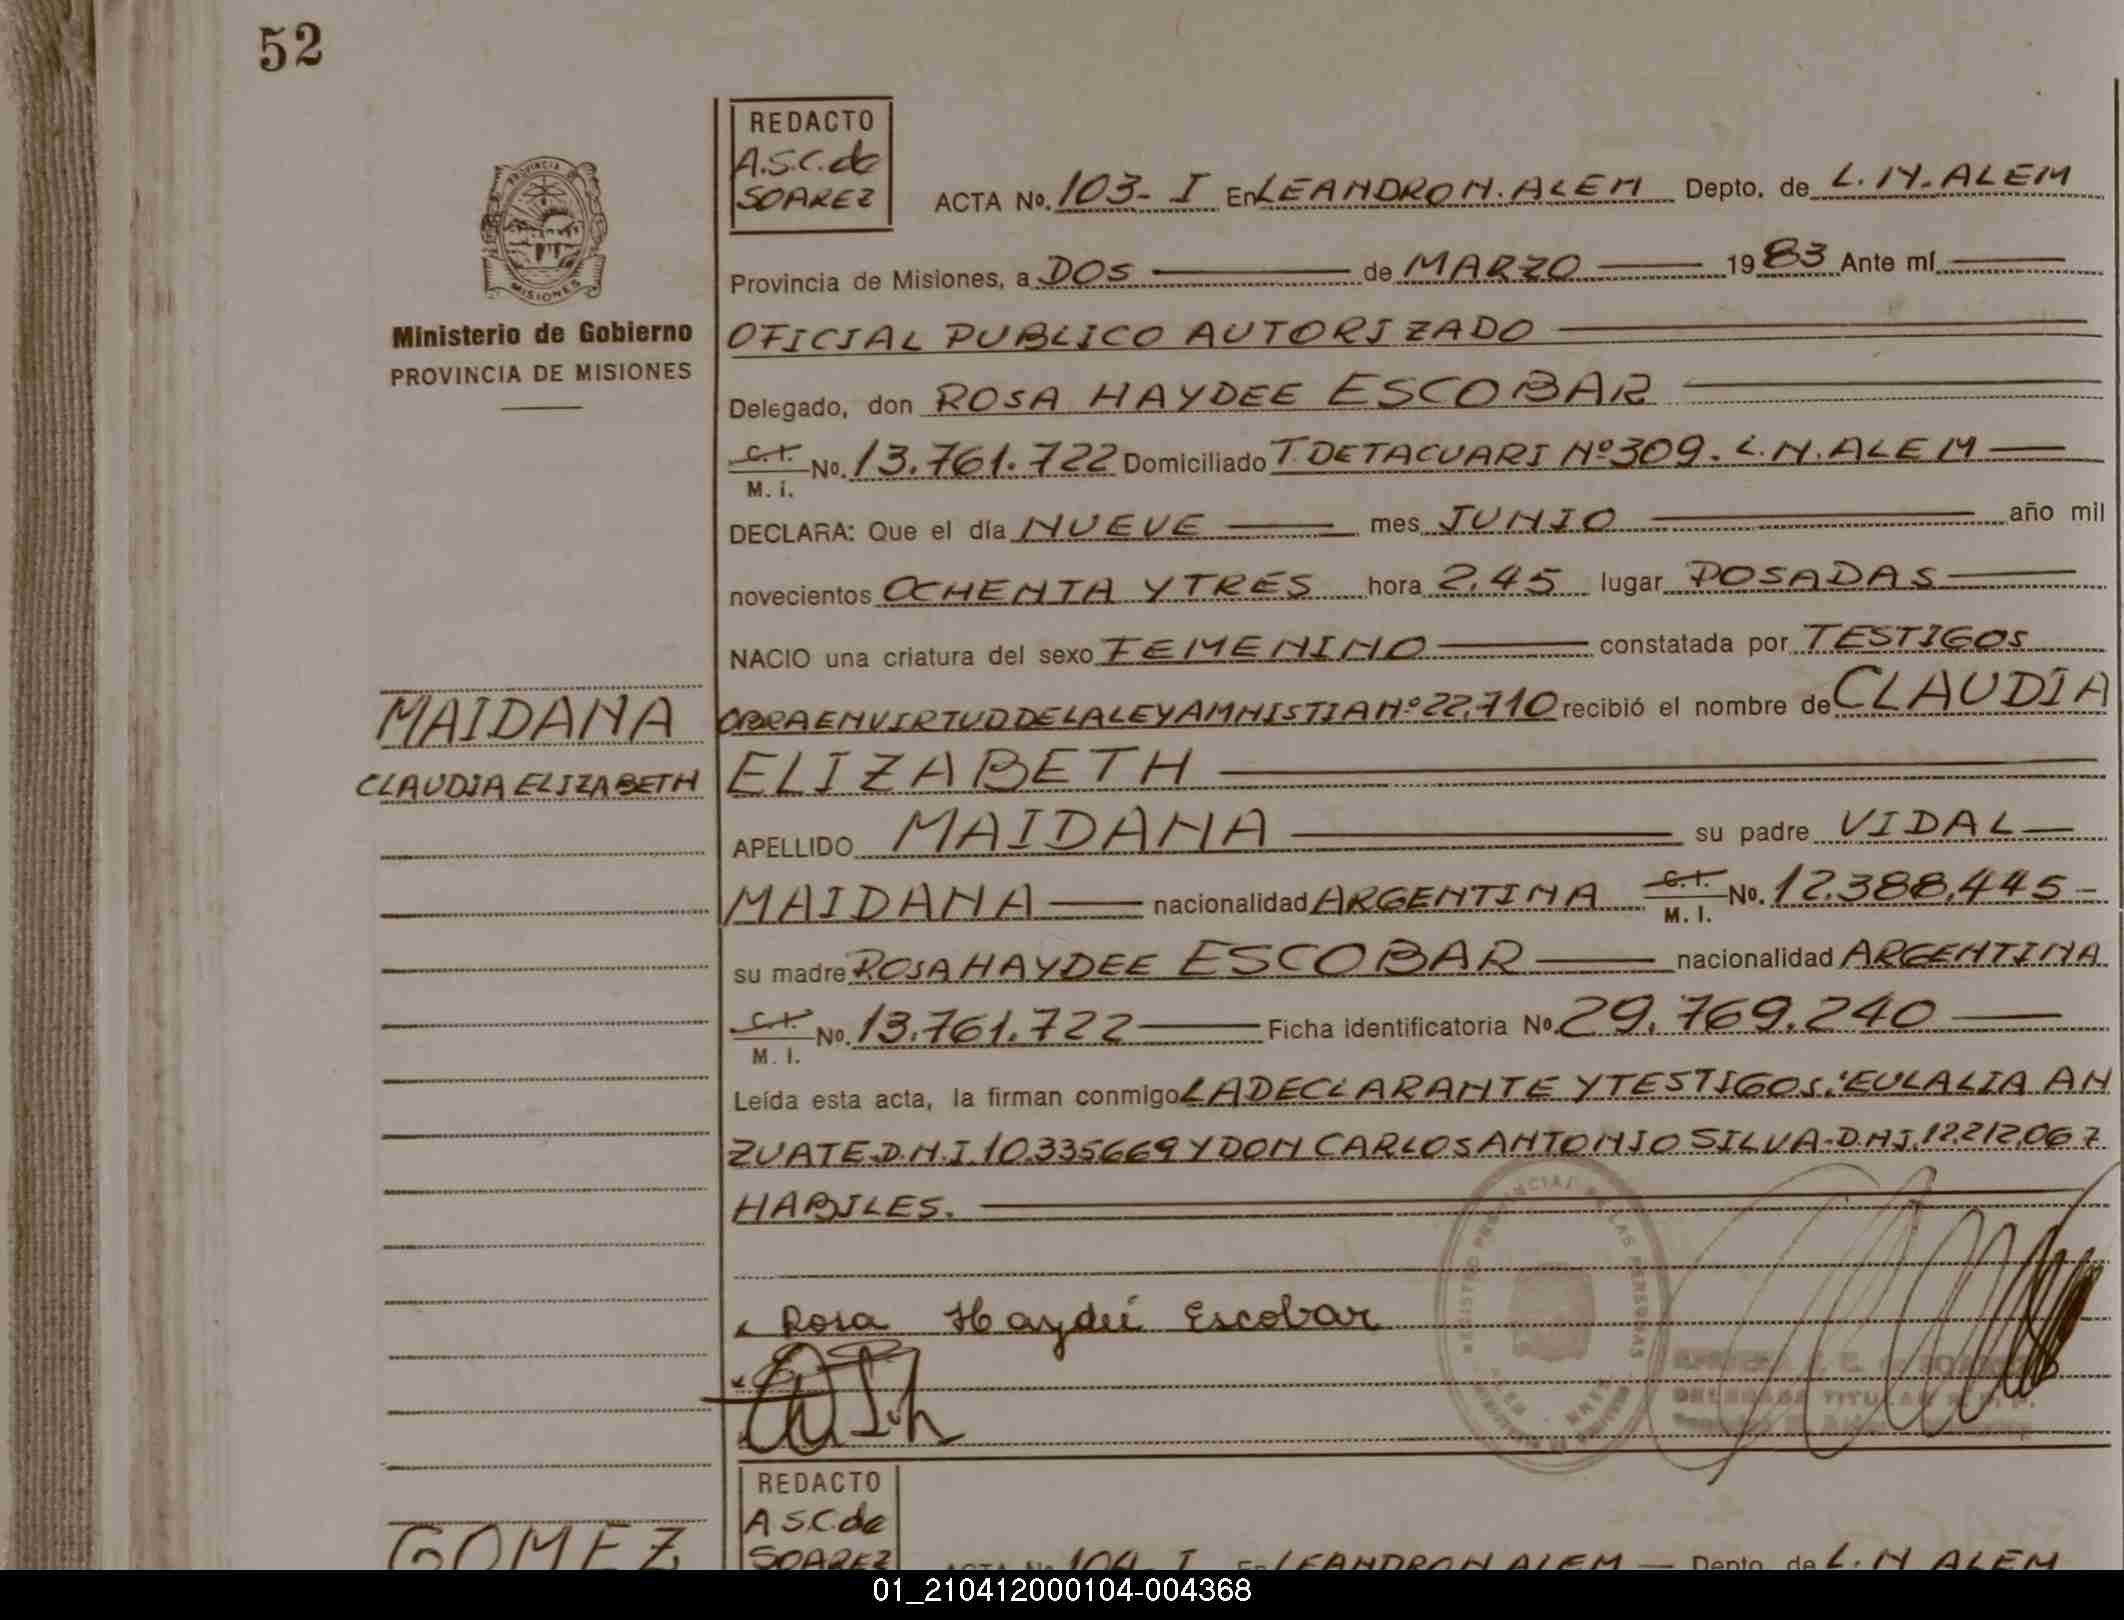 52
REDACTO
A.S.C. de
SOAREZ
ACTA No. 103- I En LEANDRO N. ALEM Depto. de L. N. ALEM
PROVINCIA DE
MISIONES
Provincia de Misiones, a DOS de MARZO 1983 Ante mí
Ministerio de Gobierno
PROVINCIA DE MISIONES
OFICIAL PUBLICO AUTORIZADO
Delegado, don ROSA HAYDEE ESCOBAR
C.I.
M. i. No. 13.761.722 Domiciliado T. DE TACUARI Nº 309. L.N. ALEM
DECLARA: Que el día NUEVE mes JUNIO año mil
novecientos OCHENTA Y TRES hora 2,45 lugar POSADAS
NACIO una criatura del sexo FEMENINO constatada por TESTIGOS
MAIDANA
OBRA EN VIRTUD DE LA LEY AMNISTIA Nº 22.710 recibió el nombre de CLAUDIA
CLAUDIA ELIZABETH
ELIZABETH
APELLIDO MAIDANA su padre VIDAL
MAIDANA nacionalidad ARGENTINA C.I.
M. I. No. 12.388.445-
su madre ROSA HAYDEE ESCOBAR nacionalidad ARGENTINA
C.I.
M. I. No. 13.761.722 Ficha identificatoria No. 29.769.240
Leída esta acta, la firman conmigo LA DECLARANTE Y TESTIGOS: EULALIA AN
ZUATE-D.N.I. 10.335669 Y DON CARLOS ANTONIO SILVA-D.N.I. 12.212.067
HABILES.
REGISTRO PROVINCIAL DE LAS PERSONAS
Rosa Haydeé Escobar
DELEGADA TITULAR
GOMEZ
REDACTO
A S.C de
SOAREZ
ACTA No. 104- I En LEANDRO N ALEM Depto. de L. N ALEM
01_210412000104-004368